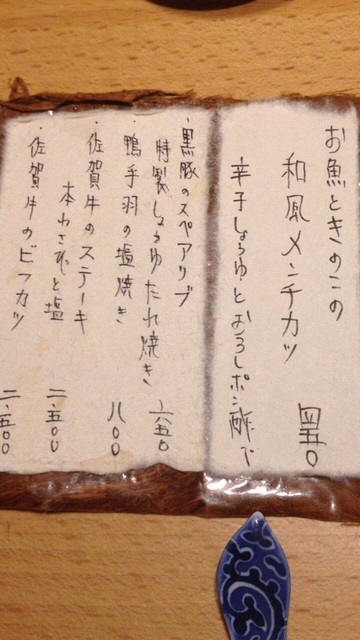 お魚ときのこの
和風メンチカツ
四五〇
辛子しょうゆとおろしポン酢で
・黒豚のスペアリブ
特製しょうゆたれ焼き
一、六五〇
・鴨手羽の塩焼き
八〇〇
・佐賀牛のステーキ
本わさびと塩
二、五〇〇
・佐賀牛のビフカツ
二、五〇〇